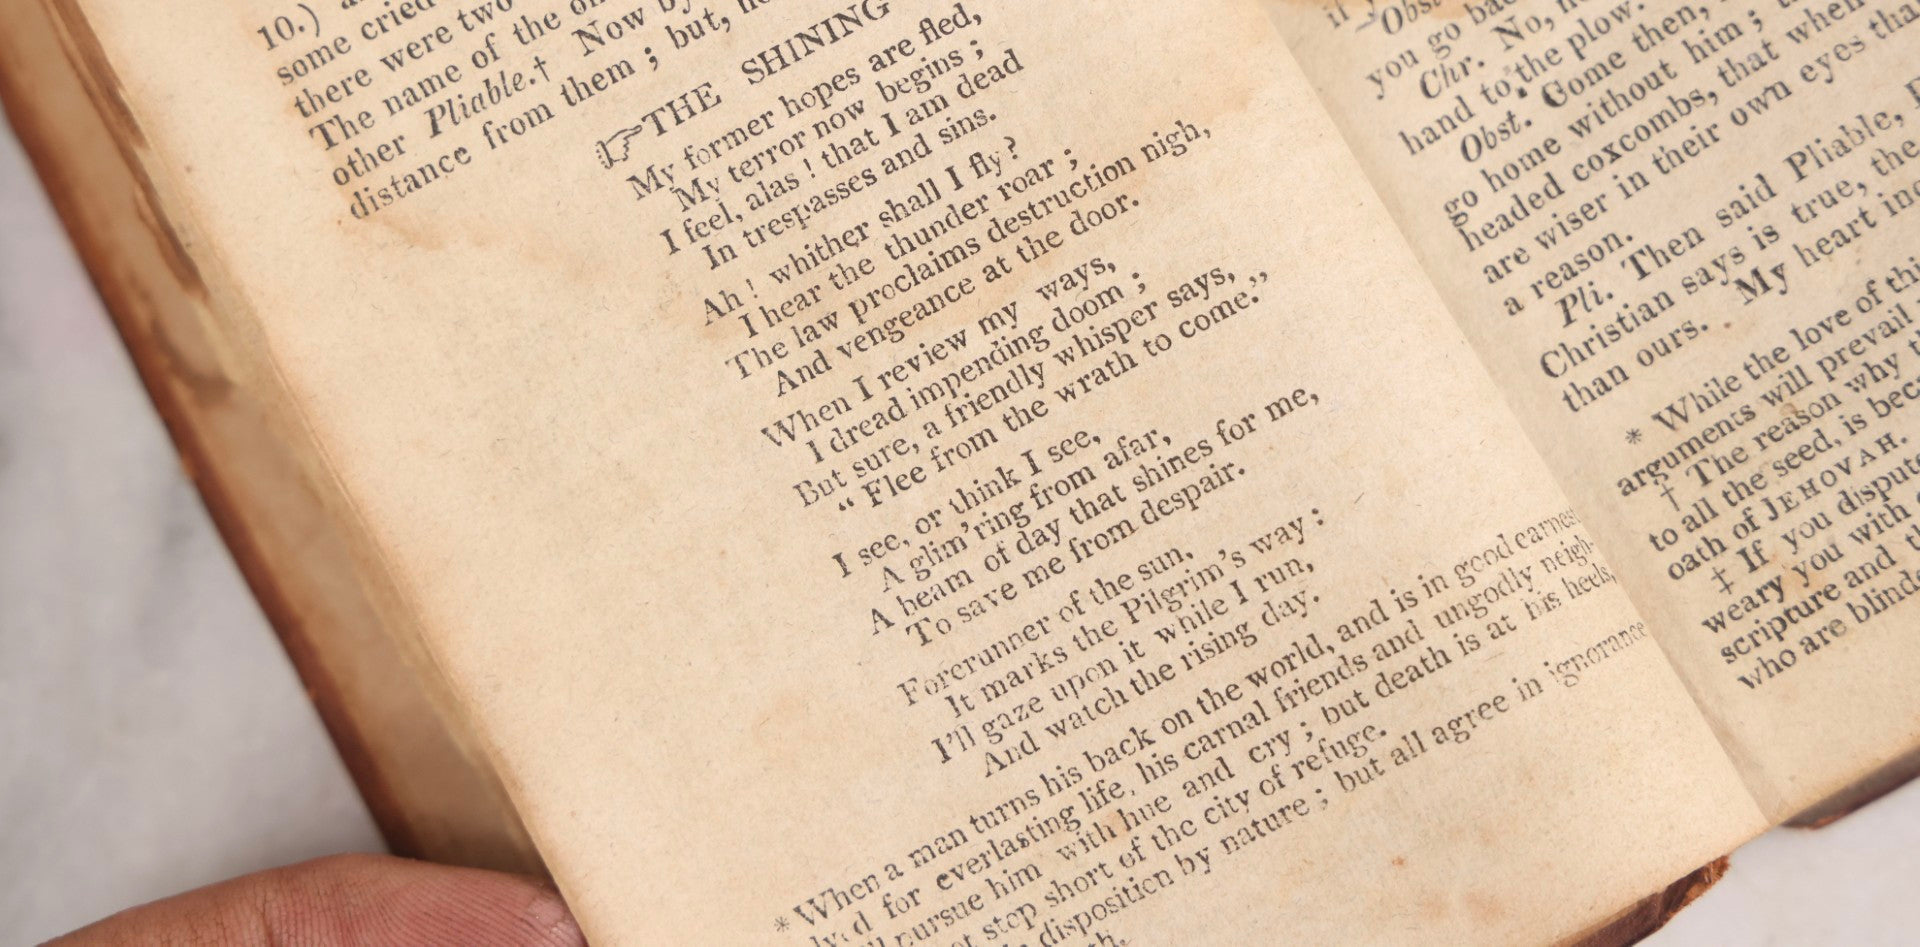 10.)
some cried
there were two
The name of the
other Pliable.† Now
distance from them ; but,
☞THE SHINING
My former hopes are fled,
My terror now begins ;
I feel, alas ! that I am dead
In trespasses and sins.
Ah ! whither shall I fly?
I hear the thunder roar ;
The law proclaims destruction nigh,
And vengeance at the door.
When I review my ways,
I dread impending doom ;
But sure, a friendly whisper says,
“ Flee from the wrath to come.”
I see, or think I see,
A glim’ring from afar,
A beam of day that shines for me,
To save me from despair.
Forerunner of the sun,
It marks the Pilgrim’s way :
I’ll gaze upon it while I run,
And watch the rising day.
* When a man turns his back on the world, and is in good earnest
for everlasting life, his carnal friends and ungodly neigh-
pursue him with hue and cry ; but death is at his heels,
stop short of the city of refuge.
disposition by nature ; but all agree in ignorance
Obst
you go
Chr. No,
hand to the plow.
Obst. Come then,
go home without him ;
headed coxcombs, that when
are wiser in their own eyes
a reason.
Pli. Then said Pliable,
Christian says is true, the
than ours. My heart
* While the love of
arguments will prevail
† The reason why
to all the seed, is
oath of JEHOVAH.
‡ If you dispute
weary you with
scripture and
who are